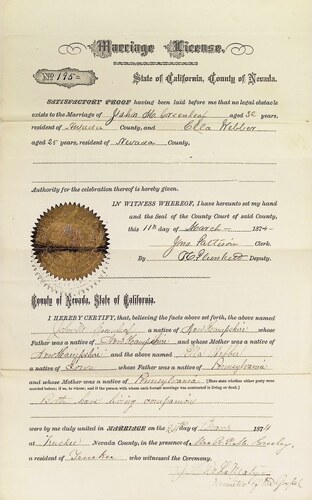 Marriage License.
No. 195 State of California, County of Nevada.
SATISFACTORY PROOF having been laid before me that no legal obstacle
exists to the Marriage of John M. Greenleaf aged 32 years,
resident of Nevada County, and Ella Webber
aged 25 years, resident of Nevada County,
Authority for the celebration thereof is hereby given.
IN WITNESS WHEREOF, I have hereunto set my hand
and the Seal of the County Court of said County,
this 11th day of March 1874
Jno. Pattison Clerk.
By Deputy.
County of Nevada, State of California.
I HEREBY CERTIFY, that, believing the facts above set forth, the above named
a native of New Hampshire whose
Father was a native of New Hampshire and whose Mother was a native of
New Hampshire and the above named Ella Webber
a native of Iowa whose Father was a native of Pennsylvania
and whose Mother was a native of Pennsylvania (Here state whether either party was
married before; if so, to whom; and if the person with whom such former marriage was contracted is living or dead.)
Both have living
were by me duly united in MARRIAGE on the day of 1874
at Truckee Nevada County, in the presence of
a resident of Truckee who witnessed the Ceremony.